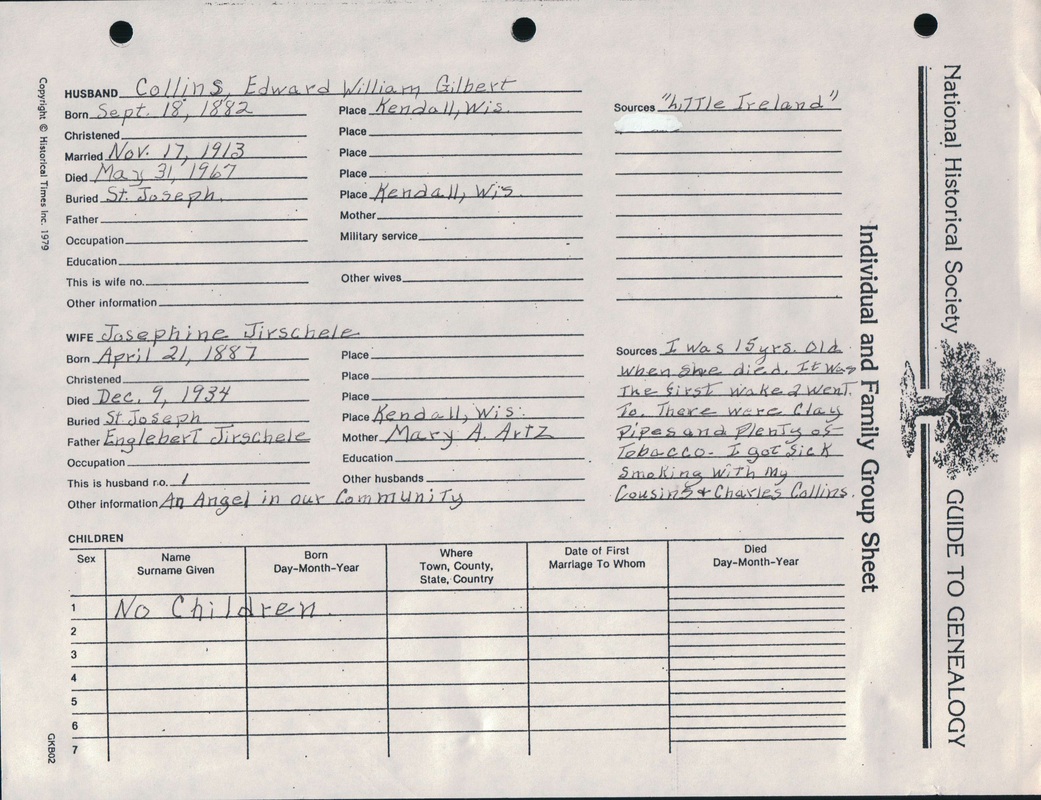 HUSBAND Collins, Edward William Gilbert
Born Sept. 18, 1882 Place Kendall, Wis.
Christened Place
Married Nov. 17, 1913 Place
Died May 31, 1967 Place
Buried St. Joseph. Place Kendall, Wis
Father Mother
Occupation Military service
Education
This is wife no. Other wives
Other information
Sources "LiTTle Ireland"
WIFE Josephine Jirschele
Born April 21, 1887 Place
Christened Place
Died Dec. 9, 1934 Place
Buried St Joseph Place Kendall, Wis.
Father Englebert Jirschele Mother Mary A. Artz
Occupation Education
This is husband no. 1 Other husbands
Other information An Angel in our Community
Sources I was 15 yrs. old
when she died. It was
The first wake I went
To. There were Clay
Pipes and Plenty of
Tobacco. I got Sick
Smoking With My
Cousins & Charles Collins.
CHILDREN
Sex Name Surname Given Born Day-Month-Year Where Town, County, State, Country Date of First Marriage To Whom Died Day-Month-Year
1 No Children
2
3
4
5
6
7
Copyright © Historical Times Inc. 1979
GKB02
Individual and Family Group Sheet
National Historical Society GUIDE TO GENEALOGY